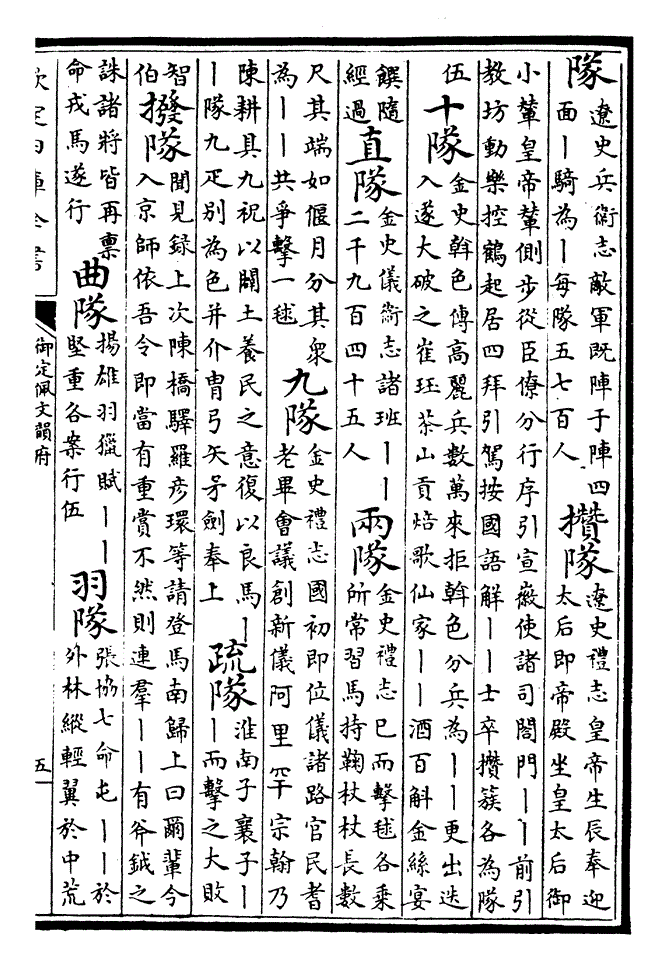 隊遼史兵衞志敵軍既陣于陣四面｜騎為｜每隊五七百人 攢隊遼史禮志皇帝生辰奉迎太后即帝殿坐皇太后御
小輦皇帝輦側步從臣僚分行序引宣徽使諸司閤門｜｜前引教坊動樂控鶴起居四拜引駕按國語解｜｜士卒攢簇各為隊
伍 十隊金史斡色傳高麗兵數萬來拒斡色分兵為｜｜更出迭入遂大破之崔珏茶山貢焙歌仙家｜｜酒百斛金絲宴
饌隨經過 直隊金史儀衞志諸班｜｜二千九百四十五人 兩隊金史禮志已而擊毬各乗所常習馬持鞠杖杖長數
尺其端如偃月分其衆為｜｜共爭擊一毬 九隊金史禮志國初即位儀諸路官民耆老畢會議創新儀阿里罕宗翰乃
陳耕具九祝以闢土養民之意復以良馬｜｜隊九疋別為色并介冑弓矢矛劍奉上 疏隊淮南子襄子｜｜而擊之大敗
智伯 撥隊聞見録上次陳橋驛羅彦環等請登馬南歸上曰爾輩今入京師依吾令即當有重賞不然則連羣｜｜有斧鉞之
誅諸將皆再禀命戎馬遂行 曲隊揚雄羽獵賦｜｜堅重各案行伍 羽隊張協七命屯｜｜於外林縱輕翼於中荒
欽定四庫全書 御定佩文韻府 五